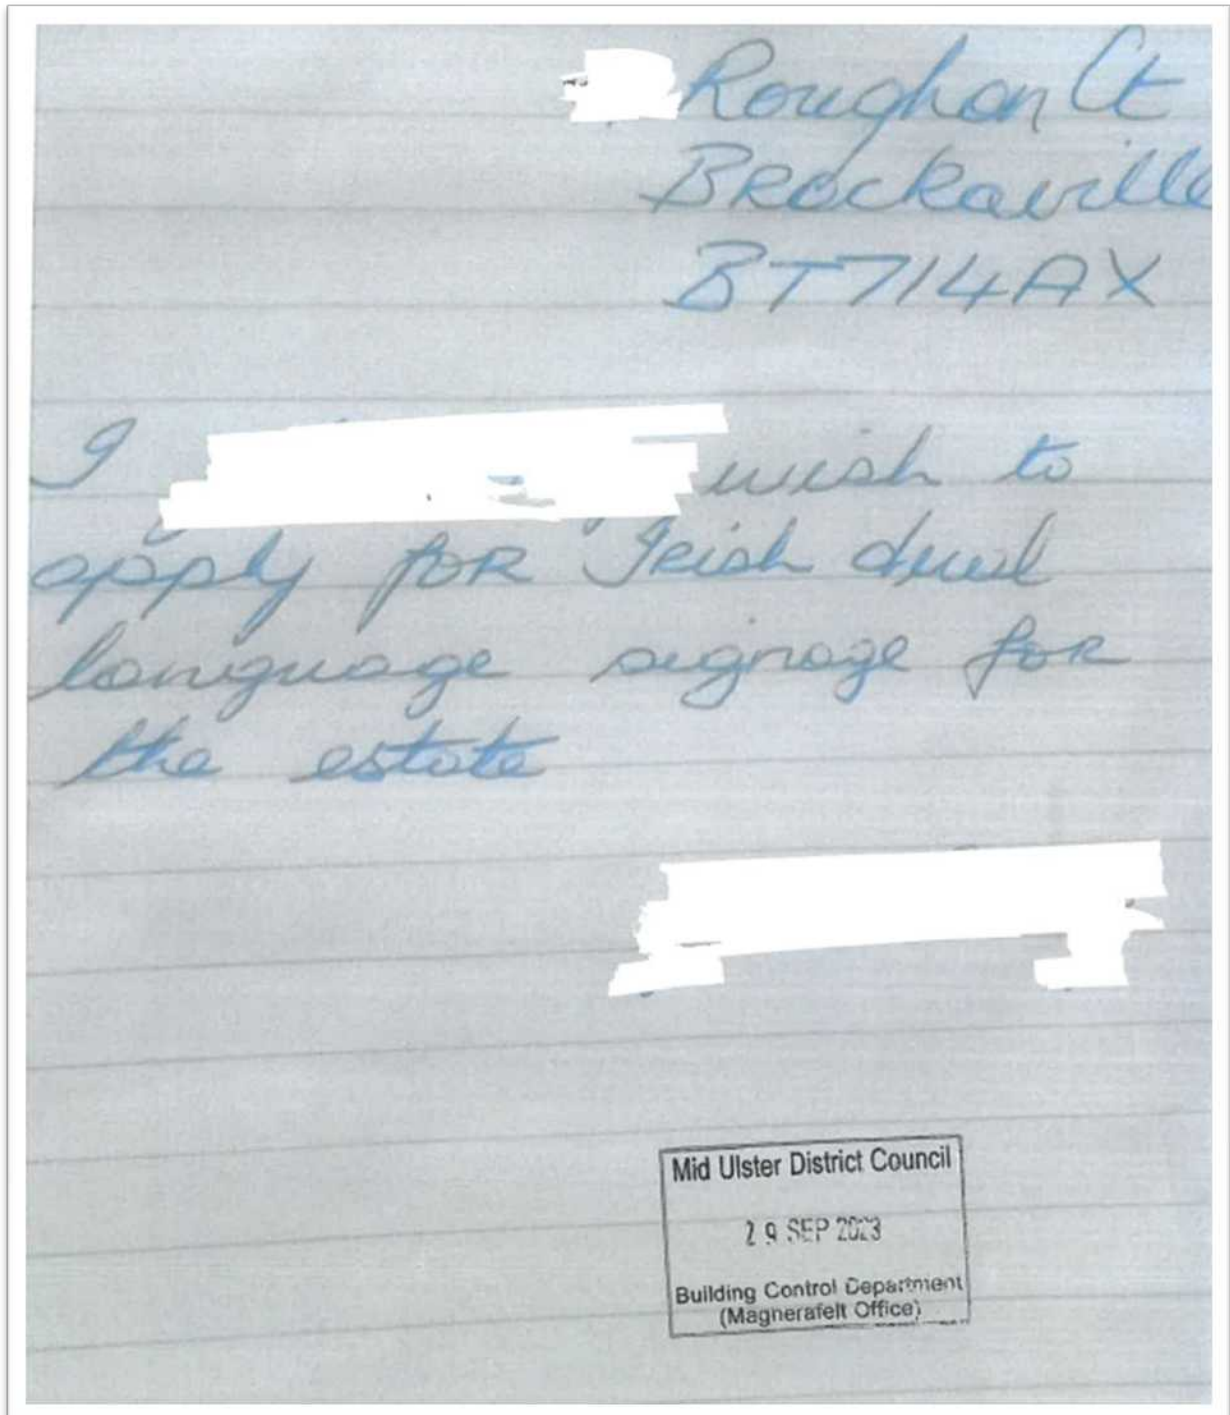 Roughan Ct
BRockaville
BT71 4AX
I wish to
apply foR Irish dual
language signage foR
the estate
Mid Ulster District Council
29 SEP 2023
Building Control Department
(Magnerafelt Office)